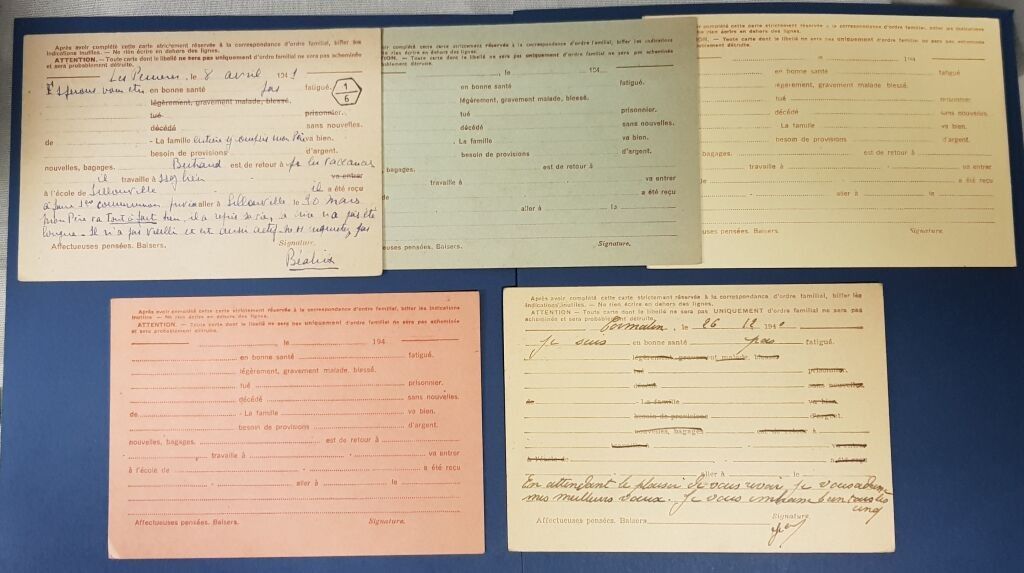 Après avoir complété cette carte strictement réservée à la correspondance d'ordre familial, biffer les
indications inutiles. — Ne rien écrire en dehors des lignes.
ATTENTION. — Toute carte dont le libellé ne sera pas uniquement d'ordre familial ne sera pas acheminée
et sera probablement détruite.
, le 8 avril 1941
Espérons vous être en bonne santé pas fatigué.
1
6
légèrement, gravement malade, blessé.
tué prisonnier.
décédé sans nouvelles.
de - La famille entière y compris mon Père va bien.
besoin de provisions d'argent.
nouvelles, bagages. Bertrand est de retour à pr les vacances
il travaille à va entrer
à l'école de il a été reçu
aller à le 30 mars
mon Père va tout à fait bien, il a repris sa vie, a pas été
longue. Il n'a pas vieilli et est aussi actif. pas
Affectueuses pensées. Baisers. Signature.
Béatrix
complété cette carte strictement réservée à la correspondance d'ordre familial, biffer les indications
— Ne rien écrire en dehors des lignes.
— Toute carte dont le libellé ne sera pas uniquement d'ordre familial ne sera pas acheminée
détruite.
, le 194
en bonne santé fatigué.
légèrement, gravement malade, blessé.
tué prisonnier.
décédé sans nouvelles.
- La famille va bien.
besoin de provisions d'argent.
bagages. est de retour à
travaille à va entrer
a été reçu
aller à le
pensées. Baisers. Signature.
strictement réservée à la correspondance d'ordre familial, biffer les indications
en dehors des lignes.
dont le libellé ne sera pas uniquement d'ordre familial ne sera pas acheminée
le 194
en bonne santé fatigué
légèrement, gravement malade, blessé.
tué prisonnier.
décédé sans nouvelles.
- La famille va bien.
besoin de provisions d'argent.
bagages. est de retour à
travaille à va entrer
a été reçu
aller à le
pensées. Baisers. Signature.
Après avoir complété cette carte strictement réservée à la correspondance d'ordre familial, biffer les indications
inutiles — Ne rien écrire en dehors des lignes.
ATTENTION. — Toute carte dont le libellé ne sera pas uniquement d'ordre familial ne sera pas acheminée
et sera probablement détruite.
, le 194
en bonne santé fatigué.
légèrement, gravement malade, blessé.
tué prisonnier.
décédé sans nouvelles.
de - La famille va bien.
besoin de provisions d'argent.
nouvelles, bagages. est de retour à
travaille à va entrer
à l'école de a été reçu
aller à le
Affectueuses pensées. Baisers. Signature.
Après avoir complété cette carte strictement réservée à la correspondance d'ordre familial, biffer les
indications inutiles. — Ne rien écrire en dehors des lignes.
ATTENTION. — Toute carte dont le libellé ne sera pas UNIQUEMENT d'ordre familial ne sera pas
acheminée et sera probablement détruite.
Cormatin, le 26 12 1940
je suis en bonne santé pas fatigué.
légèrement, gravement malade, blessé
tué prisonnier.
décédé sans nouvelles.
de - La famille va bien.
besoin de provisions d'argent.
nouvelles, bagages est de retour à
travaille à va entrer
à l'école de a été reçu
aller à le
En attendant le plaisir de vous revoir je vous adresse
mes meilleurs vœux. Je vous embrasse bien tous les
cinq
Affectueuses pensées. Baisers Signature.